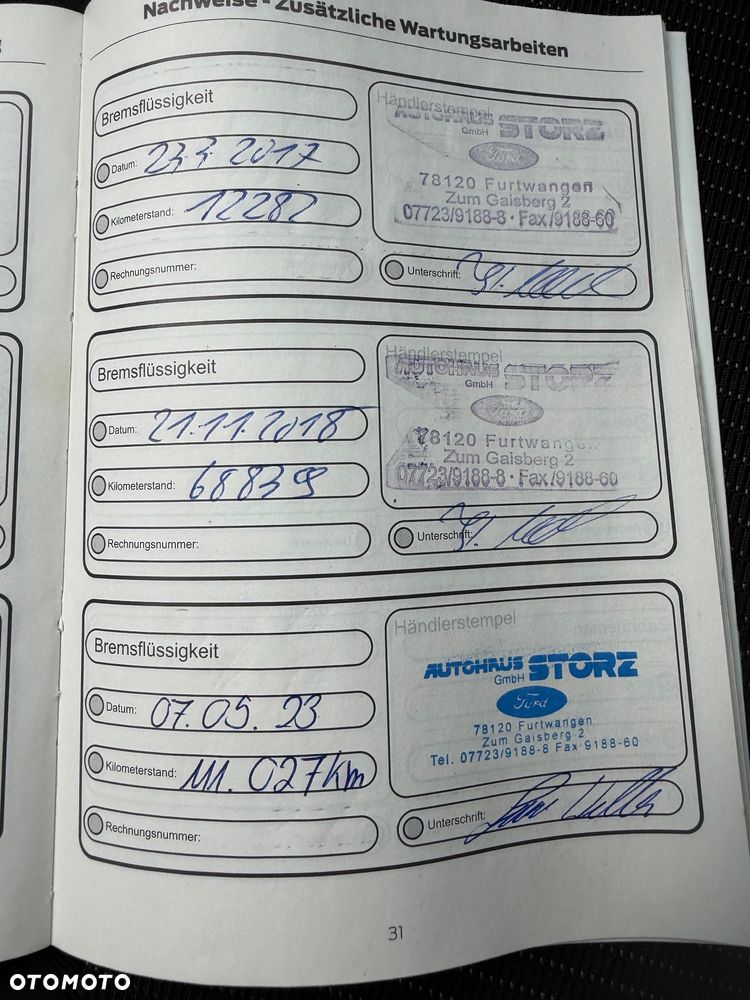 Nachweise - Zusätzliche Wartungsarbeiten
Bremsflüssigkeit
Datum: 23.3.2017
Kilometerstand: 12282
Rechnungsnummer:
Händlerstempel
AUTOHAUS STORZ
GmbH
Ford
78120 Furtwangen
Zum Gaisberg 2
07723/9188-8 · Fax/9188-60
Unterschrift:
Bremsflüssigkeit
Datum: 21.11.2018
Kilometerstand: 68839
Rechnungsnummer:
Händlerstempel
AUTOHAUS STORZ
GmbH
78120 Furtwangen
Zum Gaisberg 2
07723/9188-8 · Fax/9188-60
Unterschrift:
Bremsflüssigkeit
Datum: 07.05.23
Kilometerstand: 111.027km
Rechnungsnummer:
Händlerstempel
AUTOHAUS STORZ
GmbH
Ford
78120 Furtwangen
Zum Gaisberg 2
Tel. 07723/9188-8 Fax 9188-60
Unterschrift:
31
OTOMOTO